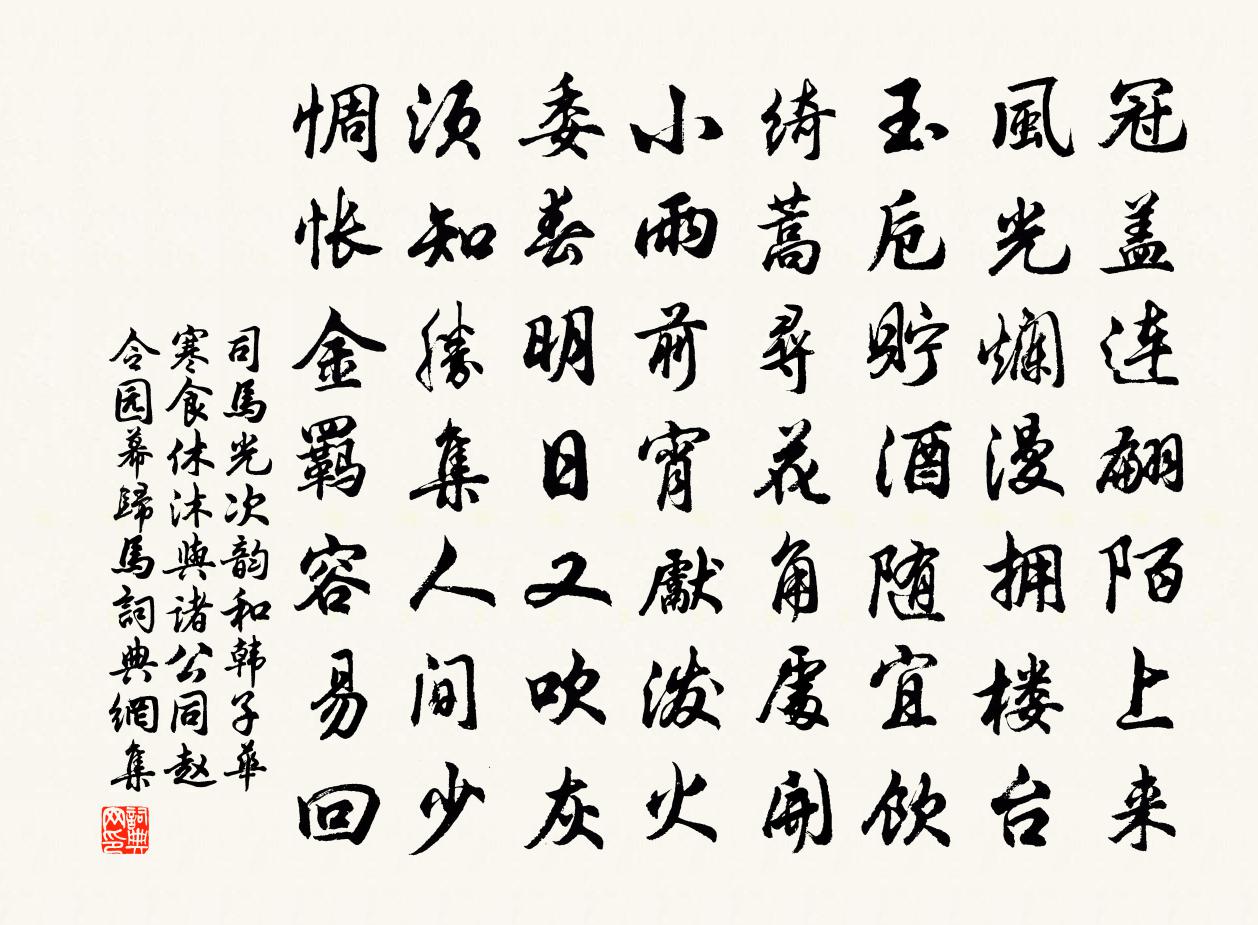 冠盖連翩陌上来
風光爛漫拥楼台
玉卮貯酒随宜飲
绮蒿尋花角處開
小雨前宵獻泼火
委春明日又吹灰
须知勝集人间少
惆怅金羁容易回
司馬光次韵和韩子華
寒食休沐與诸公同赵
令园幕歸馬詞典網集
詞典网印